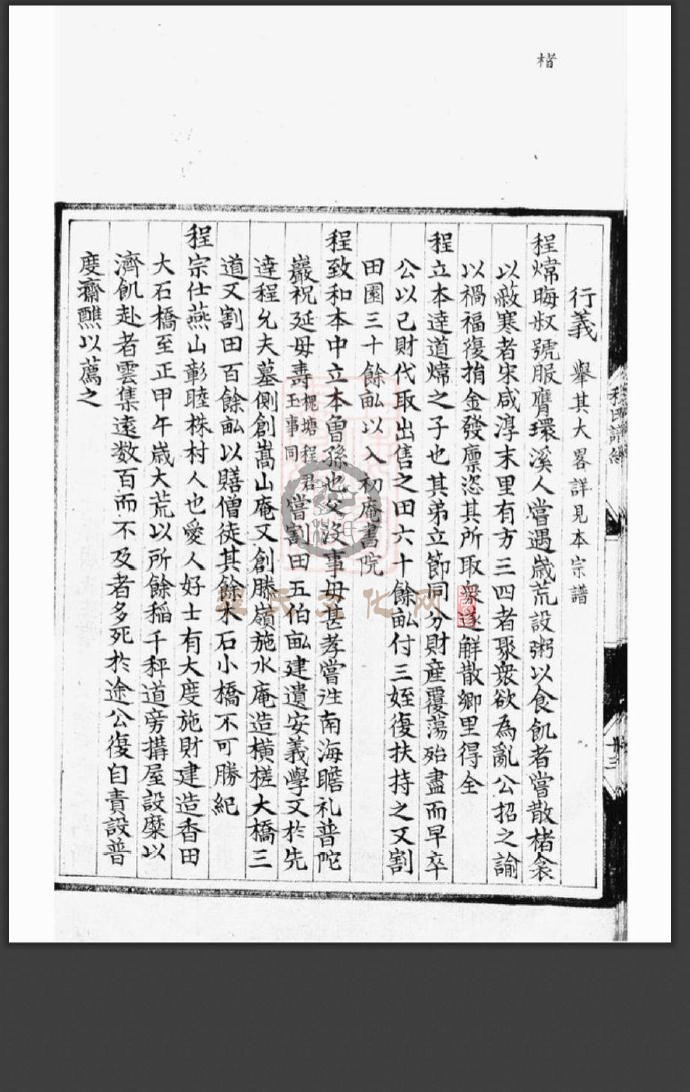 楮
行義 舉其大畧詳見本宗譜
程煒晦叔號服膺環溪人嘗遇歲荒設粥以食飢者嘗散楮衾
以蔽寒者宋咸淳末里有方三四者聚衆欲為亂公招之諭
以禍福復捐金發廪恣其所取衆遂觧散鄉里得全
程立本達道煒之子也其弟立節同分財産覆蕩殆盡而早卒
公以己財代取出售之田六十餘畝付三姪復扶持之又割
田園三十餘畝以入初庵書院
程致和本中立本曾孫也父没事母甚孝嘗往南海瞻礼普陀
巖祝延母壽槐塘程君王事同嘗割田五伯畝建遺安義學又於先
達程允夫墓側創嵩山庵又創勝嶺施水庵造橫槎大橋三
道又割田百餘畝以贍僧徒其餘木石小橋不可勝紀
程宗仕燕山彰睦株村人也愛人好士有大度施財建造香田
大石橋至正甲午歲大荒以所餘稲千秤道旁搆屋設糜以
濟飢赴者雲集遠数百而不及者多死於途公復自責設普
度齋醮以薦之
程氏譜
程氏文化网